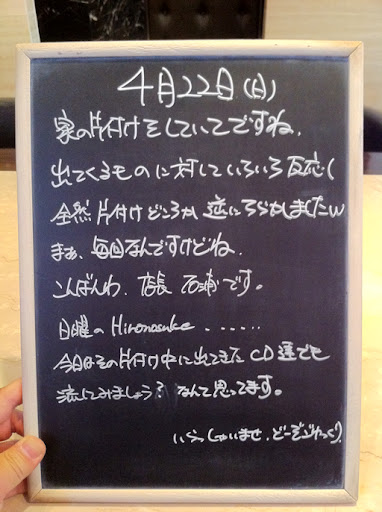 4月22日(日)
家の片付けをしていてですね、
出てくるものに対していろいろ反応し
全然片付けどころか逆にちらかしましたw
まぁ、毎回なんですけどね、
こんばんわ、店長 石浦です。
日曜のHironosuke......
今日はその片付け中に出てきた CD達でも
流してみましょう? なんて思ってます。
いらっしゃいませ、どーぞごゆっくり